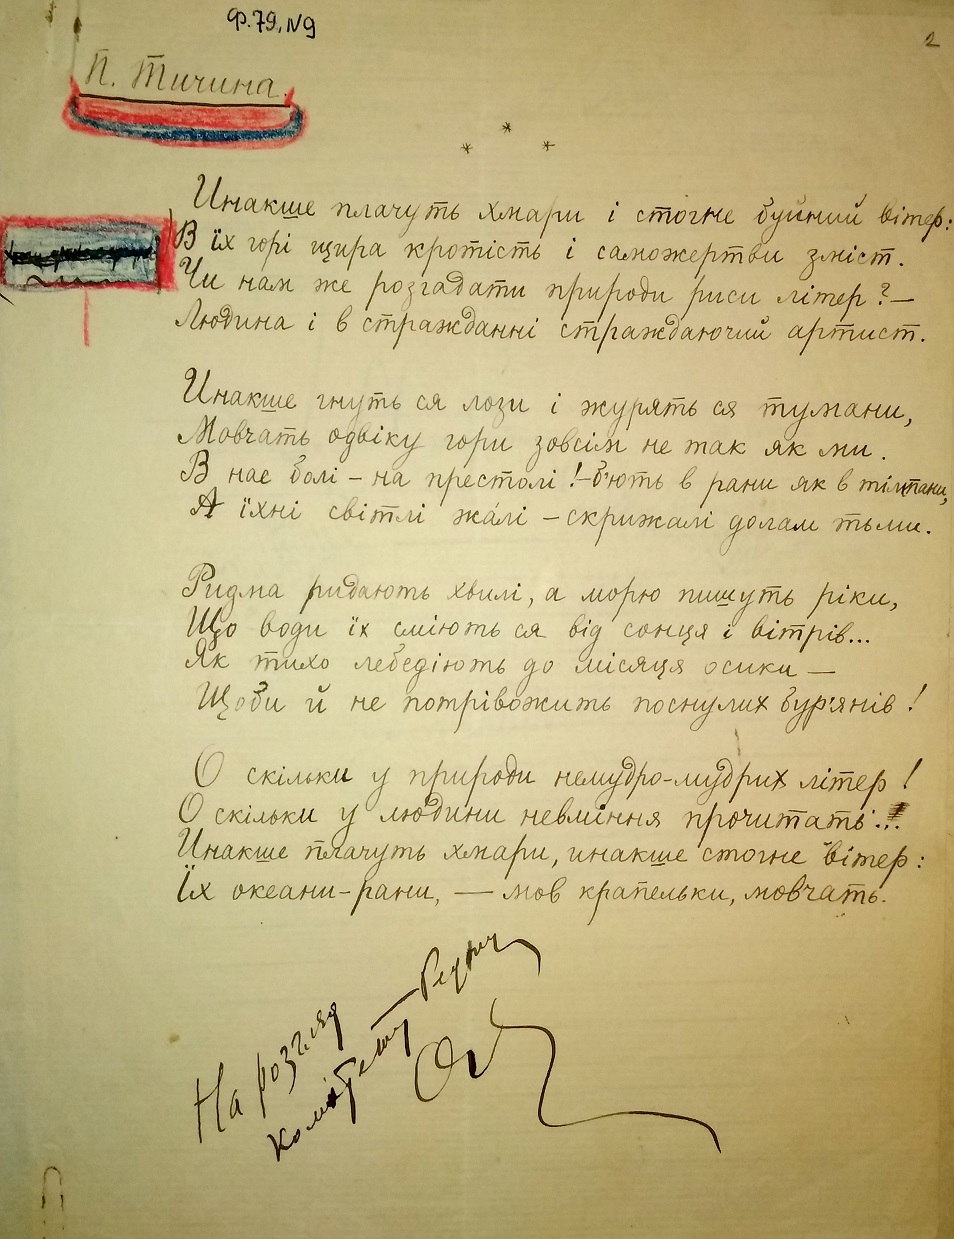 Ф.79, N9
2
П. Тичина.
* * *
Инакше плачуть хмари і стогне буйний вітер:
В їх горі щира кротість і саможертви зміст.
Чи нам же розгадати природи риси літер? —
Людина і в стражданні страждаючий артист.
Инакше гнуть ся лози і журять ся тумани,
Мовчать одвіку гори зовсім не так як ми.
В нас болі – на престолі! – б'ють в рани як в тімпани,
А їхні світлі жáлі – скрижалі долам тьми.
Ридма ридають хвилі, а морю пишуть ріки,
Що води їх сміють ся від сонця і вітрів...
Як тихо лебедіють до місяця осики —
Щоби й не потрівожить поснулих бур'янів!
О скільки у природи немудро-мудрих літер!
О скільки у людини невміння прочитать!..
Инакше плачуть хмари, инакше стогне вітер:
Їх океани-рани, — мов крапельки, мовчать.
На розгляд